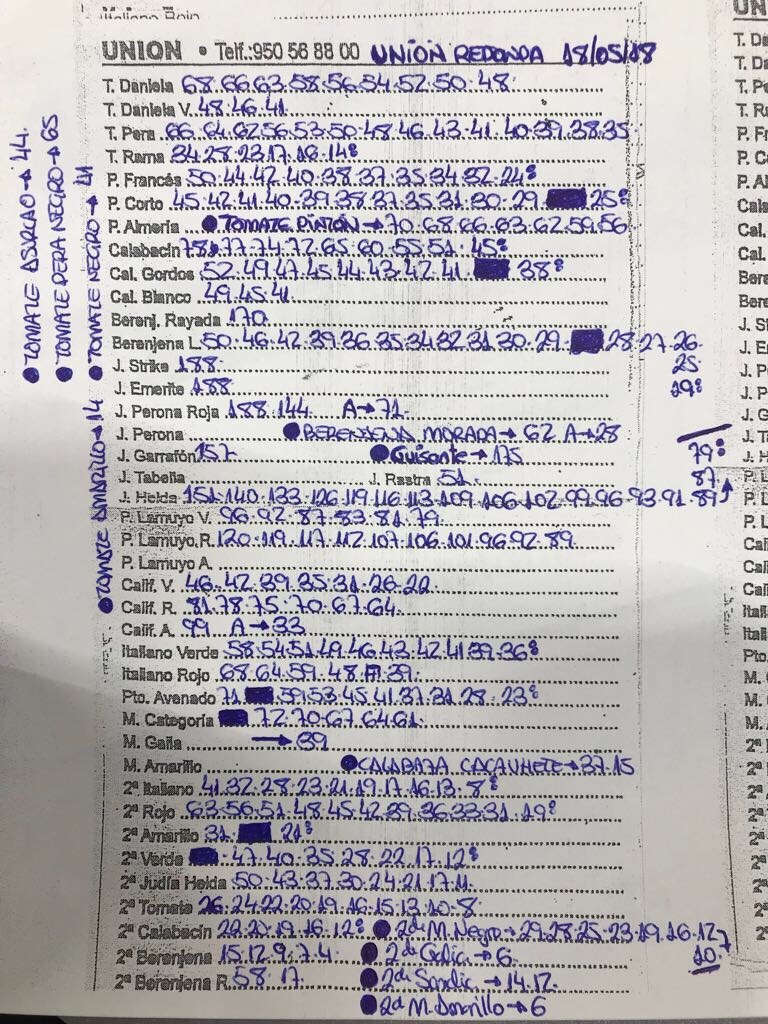 Italiano Rojo
UNION • Telf.: 950 56 88 00 UNIÓN REDONDA 18/05/18
T. Daniela 68.66.63.58.56.54.52.50.48
T. Daniela V. 48.46.41
T. Pera 66.64.62.56.53.50.48.46.43.41.40.39.38.35
T. Rama 34.28.23.17.16.14
P. Francés 50.44.42.40.38.37.35.34.32.24
P. Corto 45.42.41.40.39.38.37.35.31.30.29. 25
P. Almería TOMATE PINTÓN→70.68.66.63.62.59.56
Calabacín 78.77.74.72.65.60.55.51.45
Cal. Gordos 52.49.47.45.44.43.42.41. 38
Cal. Blanco 49.45.41
Berenj. Rayada 170
Berenjena L. 50.46.42.39.36.35.34.32.31.30.29. 28.27.26.
25
19
J. Strike 188
J. Emerite 188
J. Perona Roja 188.144 A→71
J. Perona BERENJENA MORADA→62 A→28
J. Garrafón 157 Guisante→175
J. Tabella J. Rastra 51
J. Helda 151.140.133.126.119.116.113.109.106.102.99.96.93.91.89
87
79
P. Lamuyo V. 96.92.87.83.81.79
P. Lamuyo R. 120.119.117.112.107.106.101.96.92.89
P. Lamuyo A.
Calif. V. 46.42.39.35.31.26.22
Calif. R. 81.78.75.70.67.64
Calif. A. 99 A→33
Italiano Verde 58.54.51.49.46.43.42.41.39.36
Italiano Rojo 68.64.59.48. 39
Pto. Avenado 71. 59.53.45.41.37.31.28.23
M. Categoría 72.70.67.64.61
M. Galia →39
M. Amarillo CALABAZA CACAUHETE→37.15
2ª Italiano 41.32.28.23.21.19.17.16.13.8
2ª Rojo 63.56.51.48.45.42.39.36.33.31.19
2ª Amarillo 31. 21
2ª Verde 47.40.35.28.22.17.12
2ª Judía Helda 50.43.37.30.24.21.17.11
2ª Tomate 26.24.22.20.19.16.15.13.10.8
2ª Calabacín 22.20.19.16.12 2da M. Negro→29.28.25.23.19.16.12
10
2ª Berenjena 15.12.9.7.4 2da Galia→6
2ª Berenjena R. 58.17 2da Sandía→14.12
2da M. Amarillo→6
TOMATE ASURCAO→44
TOMATE PERA NEGRO→65
TOMATE NEGRO→41
TOMATE AMARILLO→14